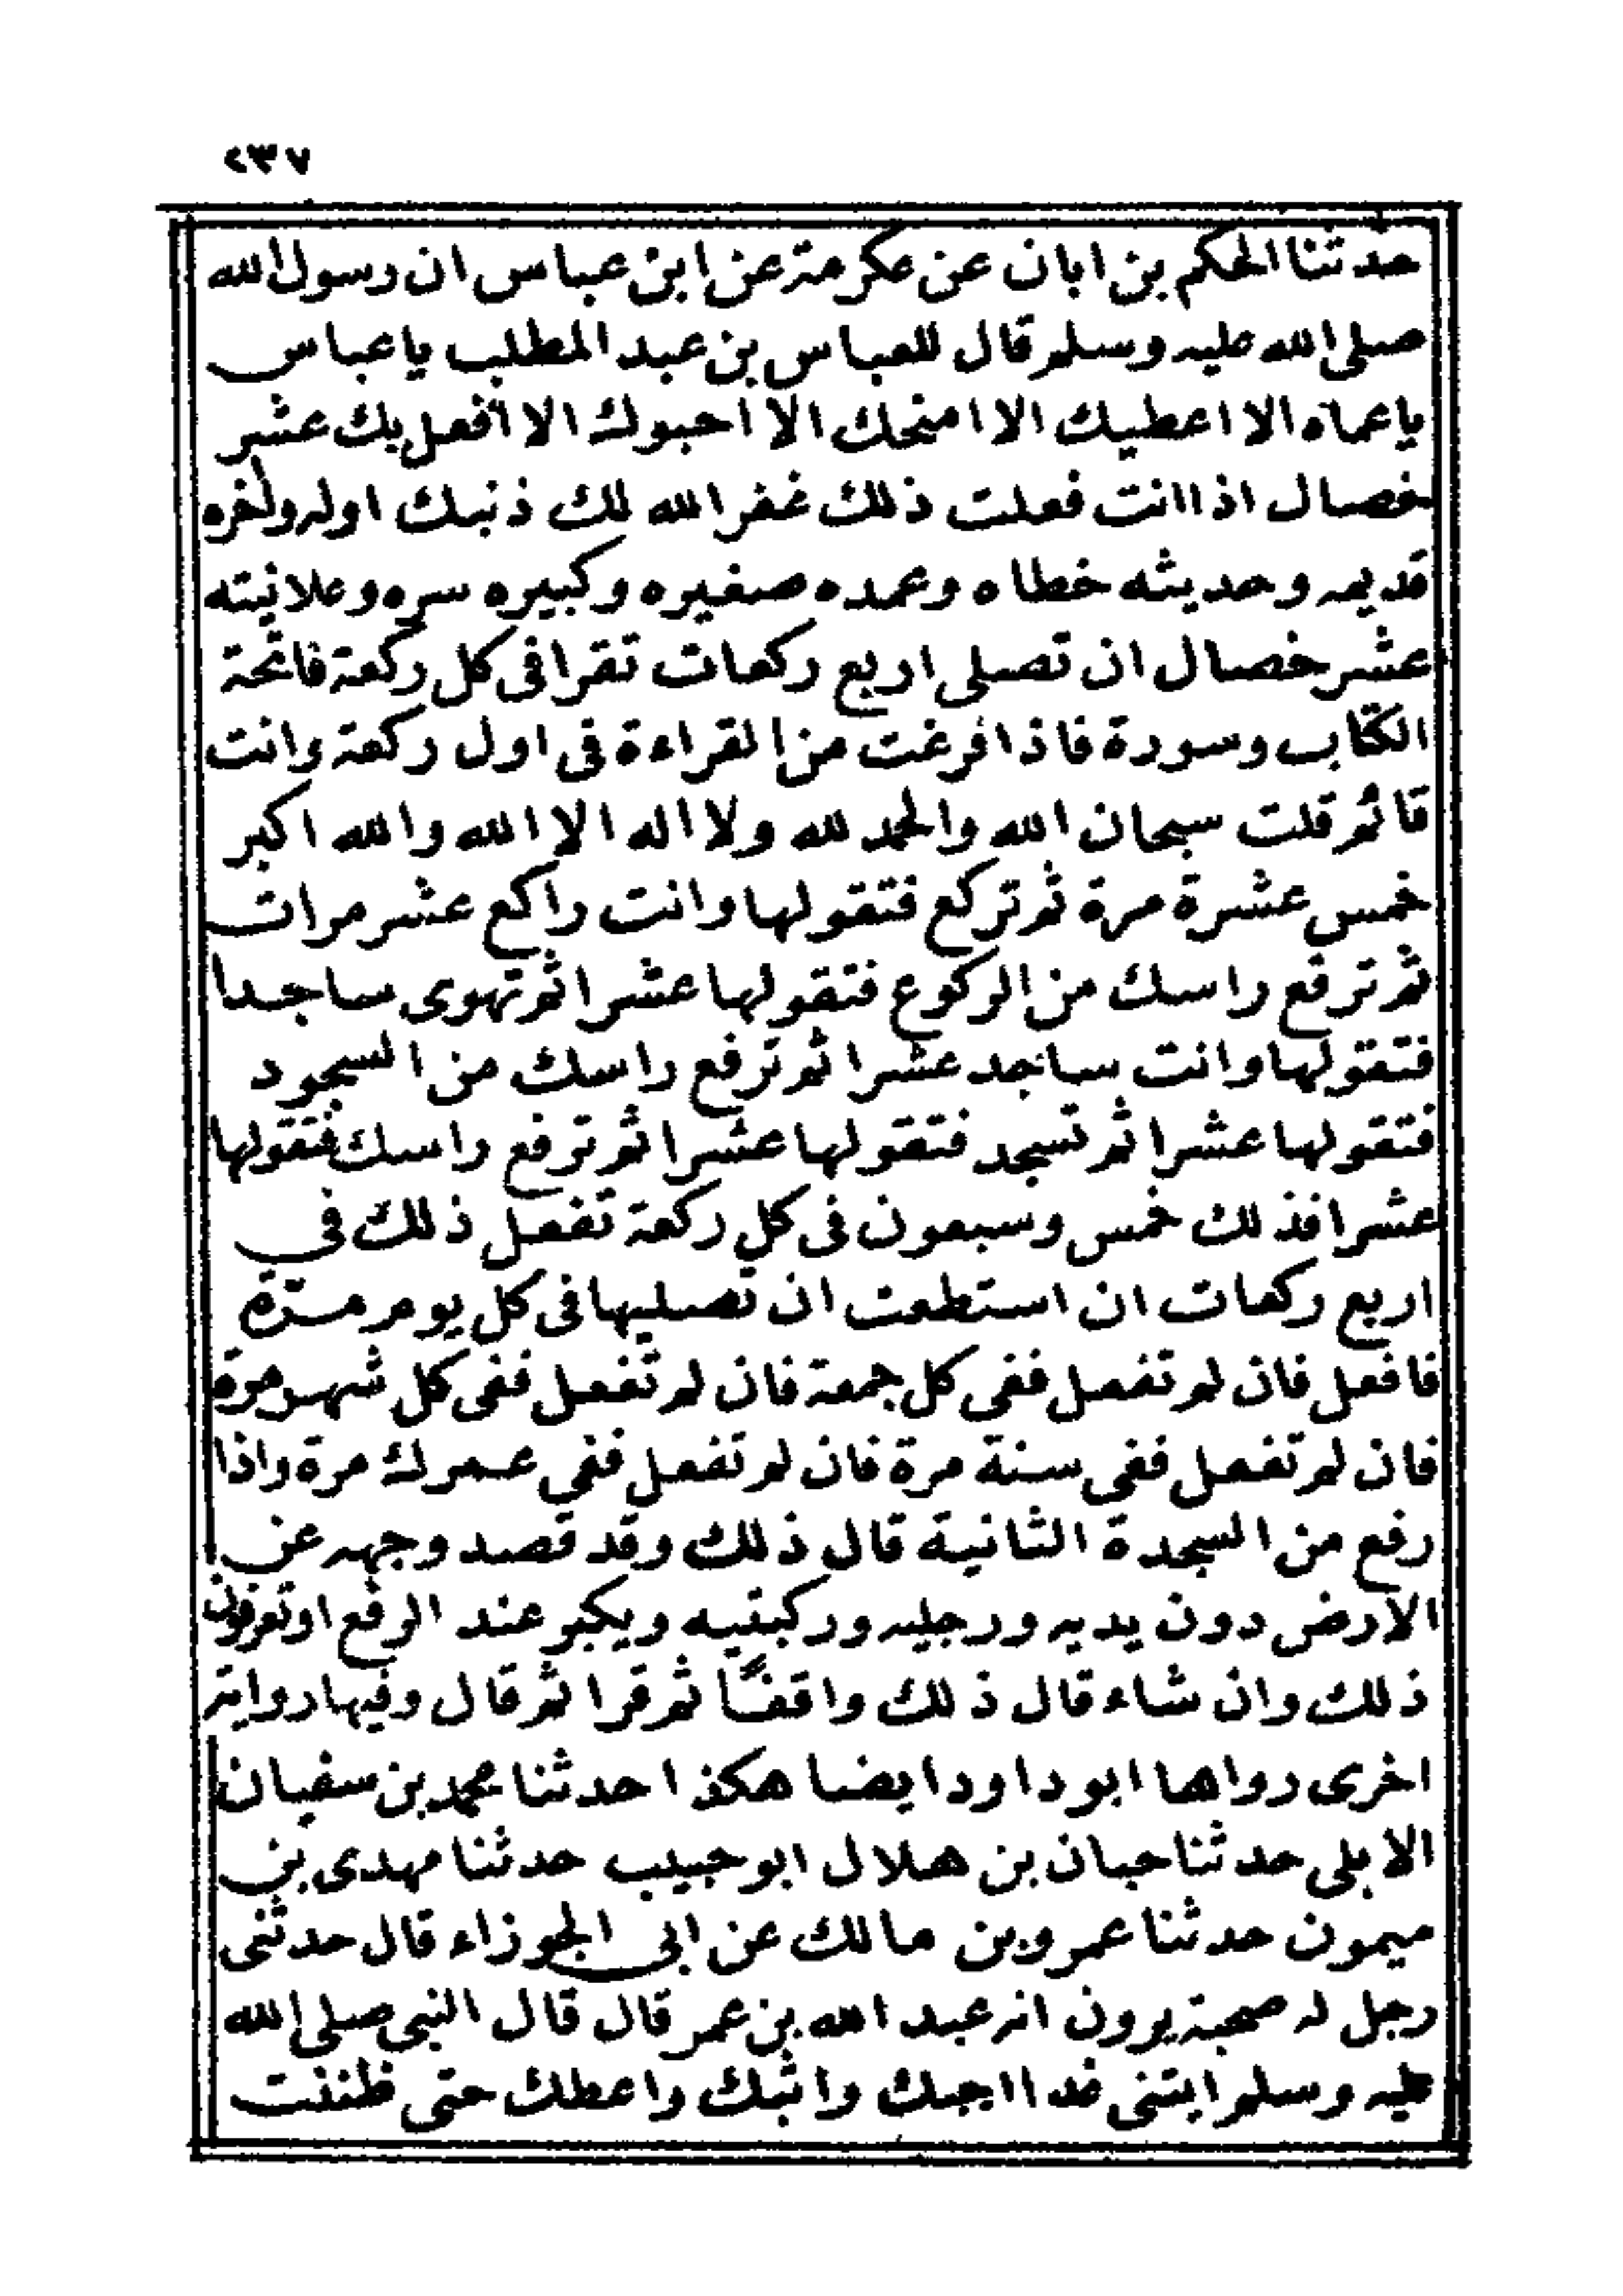 ٢٣٧
حدثنا الحكم بن ابان عن عكرمة عن ابن عباس ان رسول الله
صلى الله عليه وسلم قال للعباس بن عبد المطلب يا عباس
يا عماه الا اعطيك الا امنحك الا احبوك الا افعل بك عشر
خصال اذا انت فعلت ذلك غفر الله لك ذنبك اوله واخره
قديمه وحديثه خطاه وعمده صغيره وكبيره سره وعلانيته
عشر خصال ان تصلى اربع ركعات تقرا فى كل ركعة فاتحة
الكتاب وسورة فاذا فرغت من القراءة فى اول ركعة وانت
قائم قلت سبحان الله والحمد لله ولا اله الا الله والله اكبر
خمس عشرة مرة ثم تركع فتقولها وانت راكع عشر مرات
ثم ترفع راسك من الركوع فتقولها عشرا ثم تهوى ساجدا
فتقولها وانت ساجد عشرا ثم ترفع راسك من السجود
فتقولها عشرا ثم تسجد فتقولها عشرا ثم ترفع راسك فتقولها
عشرا فذلك خمس وسبعون فى كل ركعة تفعل ذلك فى
اربع ركعات ان استطعت ان تصليها فى كل يوم مرّة
فافعل فان لم تفعل ففى كل جمعة فان لم تفعل ففى كل شهر مرة
فان لم تفعل ففى سنة مرة فان لم تفعل ففى عمرك مرة واذا
رفع من السجدة الثانية قال ذلك وقد قصد وجهه عن
الارض دون يديه ورجليه وركبتيه ويكبر عند الرفع او تعرفون
ذلك وان شاء قال ذلك واقفًا ثم قرا ثم قال وفيها رواية
اخرى رواها ابو داود ايضا هكذا حدثنا محمد بن سفيان
الابلى حدثنا حبان بن هلال ابو حبيب حدثنا مهدى بن
ميمون حدثنا عمرو بن مالك عن ابى الجوزاء قال حدثنى
رجل له صحبة يرون انه عبد الله بن عمر قال قال النبى صلى الله
عليه وسلم ايتنى غدا احبك واثبك واعطك حتى ظننت